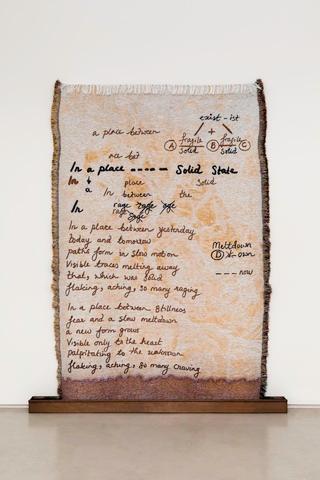 exist - ist
a place between
+
fragile fragile
A solid B solid C
nce bet
In a place ----- Solid State
In place Solid
a In between the
In rage rage age
rage
In a place between yesterday
today and tomorrow
paths form in slow motion
Visible traces melting away
that, which was solid
flaking, aching, so many raging
Meltdown
D
--- now
In a place between stillness
fear and a slow meltdown
a new form grows
Visible only to the heart
palpitating to the unknown
flaking, aching, so many craving